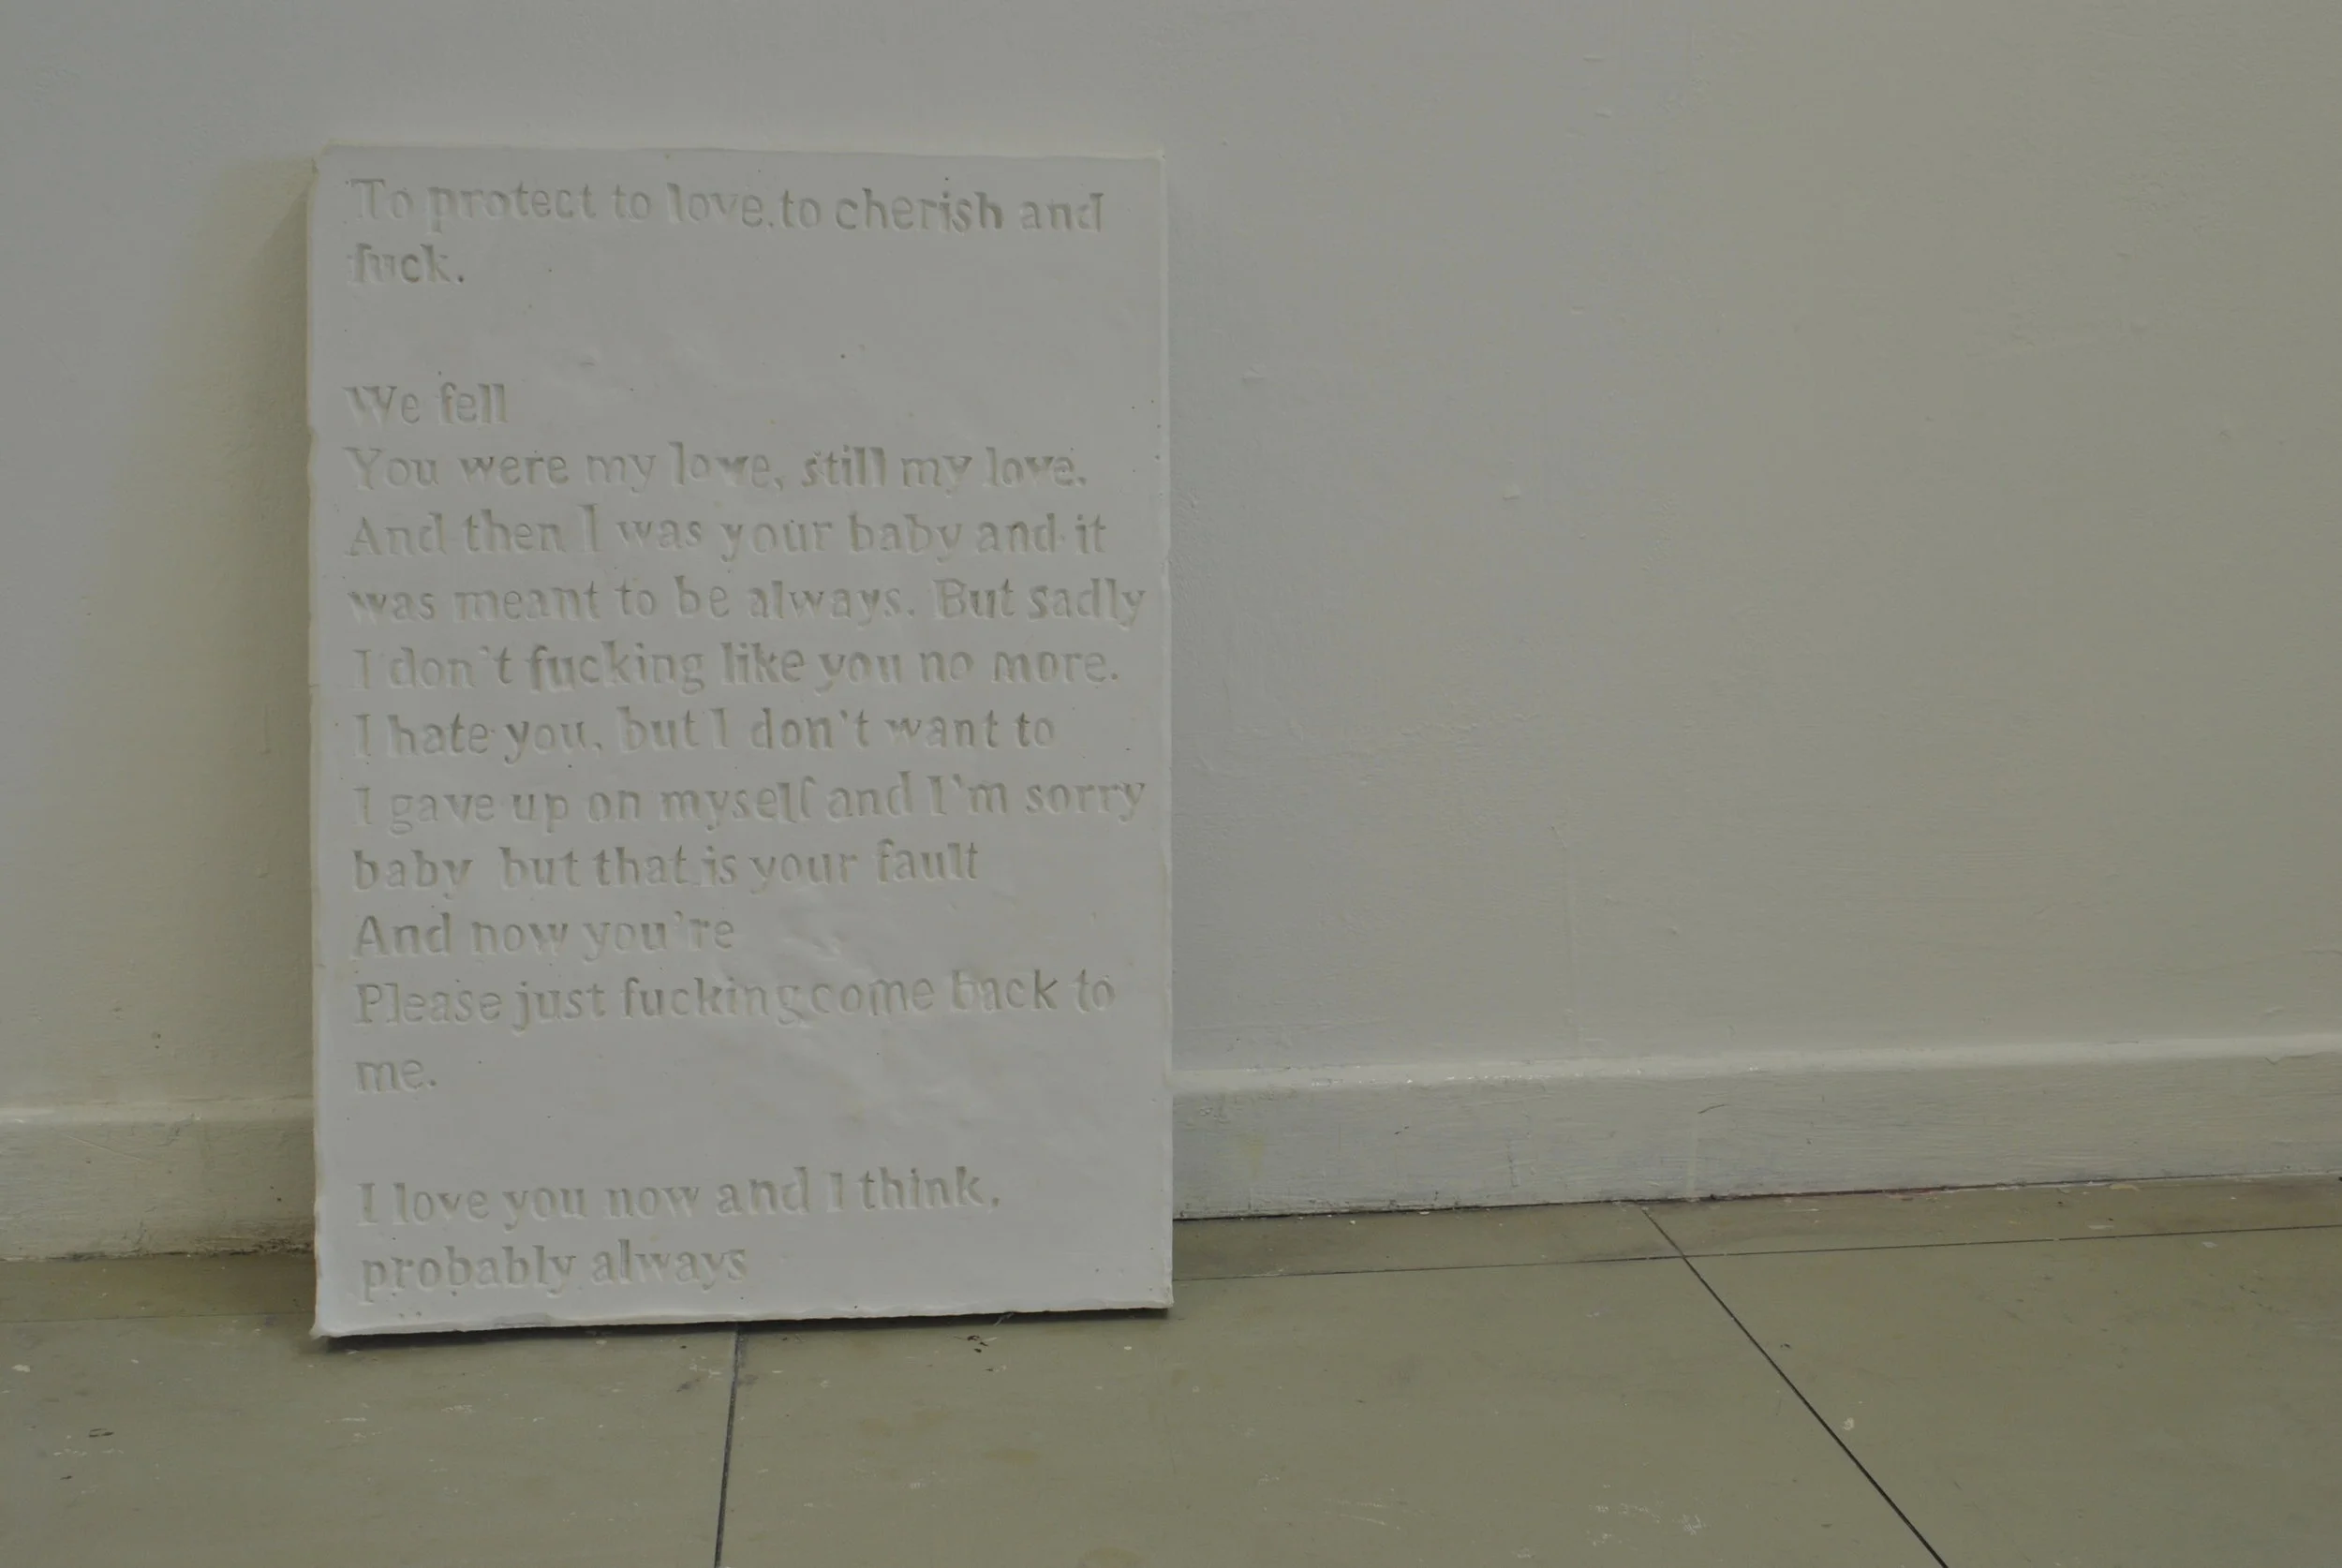 To protect to love.to cherish and
fuck.
We fell
You were my love, still my love.
And then I was your baby and it
was meant to be always. But sadly
I don't fucking like you no more.
I hate you, but I don't want to
I gave up on myself and I'm sorry
baby but that is your fault
And now you're
Please just fucking come back to
me.
I love you now and I think,
probably always